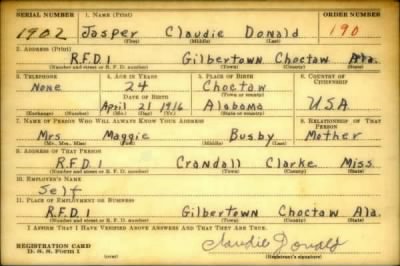 SERIAL NUMBER 1. NAME (Print) ORDER NUMBER
1902 Jasper Claudie Donald 190
(First) (Middle) (Last)
2. ADDRESS (Print)
R.F.D. 1 Gilbertown Choctaw Ala.
(Number and street or R. F. D. number) (Town) (County) (State)
3. TELEPHONE 4. AGE IN YEARS 5. PLACE OF BIRTH 6. COUNTRY OF CITIZENSHIP
None 24 Choctaw
DATE OF BIRTH (Town or county)
April 21 1916 Alabama USA
(Exchange) (Number) (Mo.) (Day) (Yr.) (State or country)
7. NAME OF PERSON WHO WILL ALWAYS KNOW YOUR ADDRESS 8. RELATIONSHIP OF THAT PERSON
Mrs Maggie Busby Mother
(Mr., Mrs., Miss) (First) (Middle) (Last)
9. ADDRESS OF THAT PERSON
R.F.D. 1 Crandall Clarke Miss.
(Number and street or R. F. D. number) (Town) (County) (State)
10. EMPLOYER'S NAME
Self
11. PLACE OF EMPLOYMENT OR BUSINESS
R.F.D. 1 Gilbertown Choctaw Ala.
(Number and street or R. F. D. number) (Town) (County) (State)
I AFFIRM THAT I HAVE VERIFIED ABOVE ANSWERS AND THAT THEY ARE TRUE.
REGISTRATION CARD
D. S. S. Form 1 Claudie Donald
(Registrant's signature)